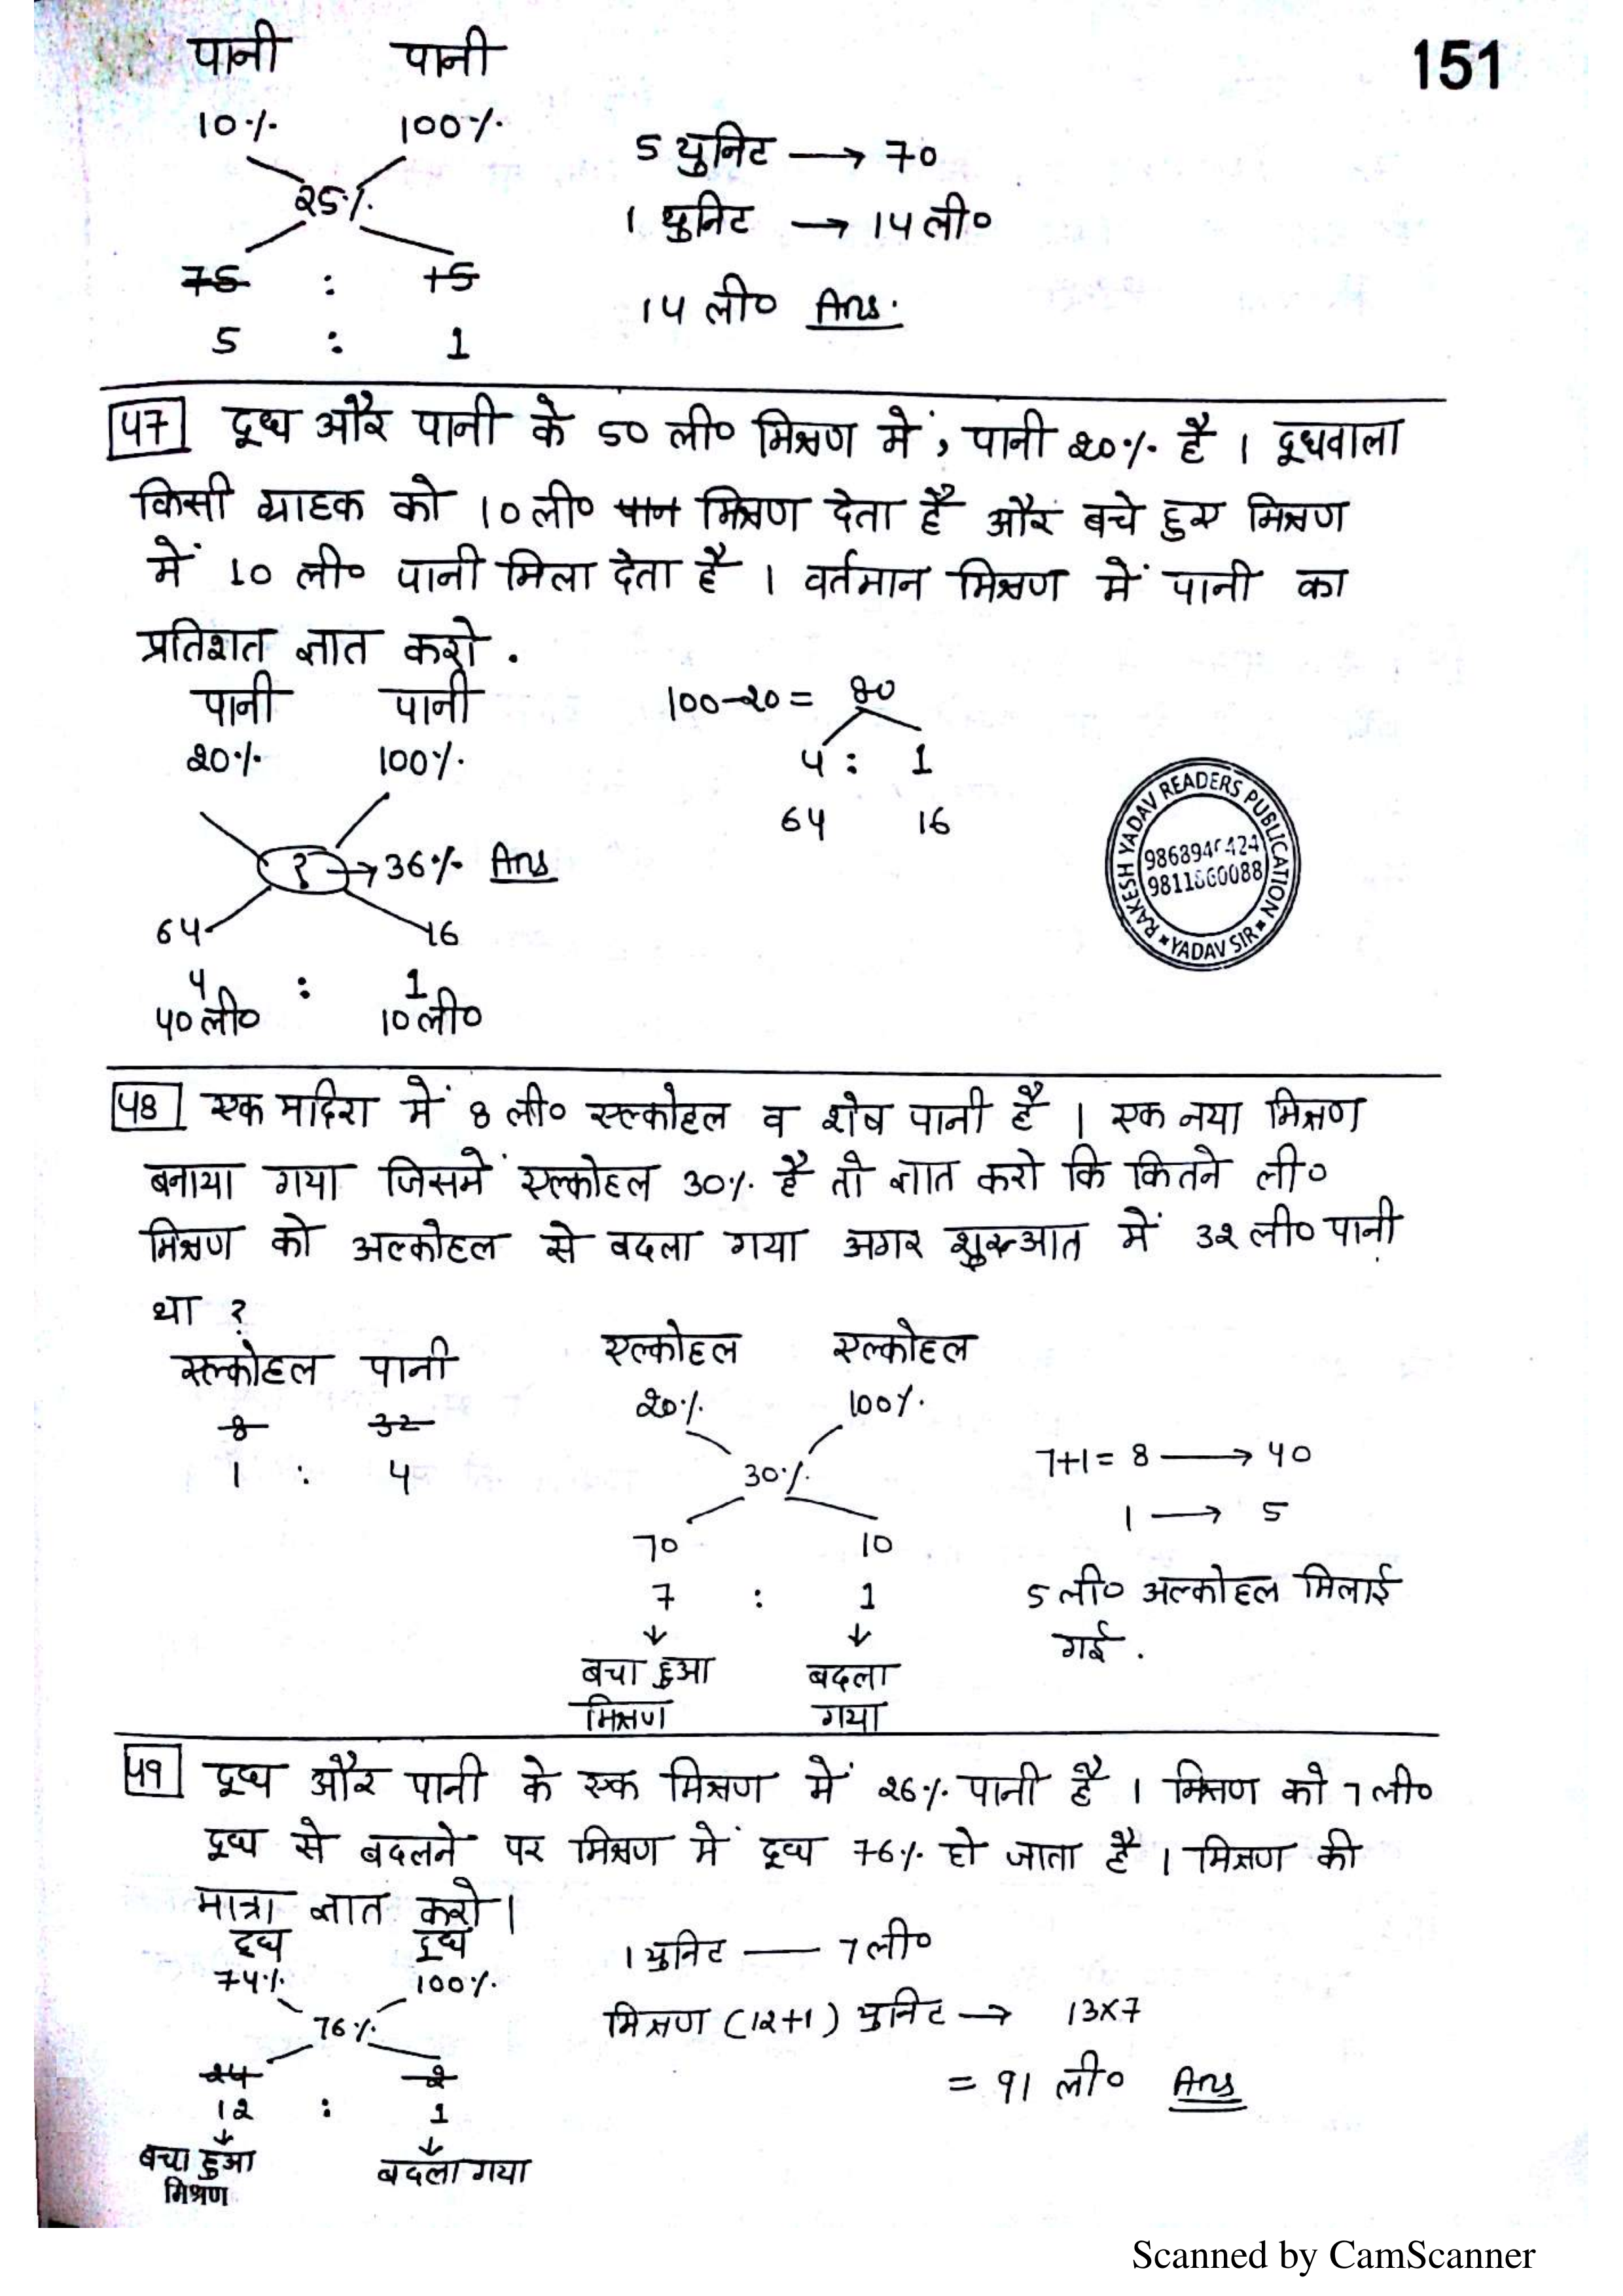 151
पानी पानी
10% 100%
25%
75 : 15
5 : 1
5 युनिट → 70
1 युनिट → 14 ली०
14 ली० Ans.
47 दूध और पानी के 50 ली० मिश्रण में, पानी 20% है । दूधवाला
किसी ग्राहक को 10 ली० पान मिश्रण देता है और बचे हुए मिश्रण
में 10 ली० पानी मिला देता है । वर्तमान मिश्रण में पानी का
प्रतिशत ज्ञात करो .
पानी पानी
20% 100%
? → 36% Ans
64 16
4 : 1
40 ली० 10 ली०
100-20 = 80
4 : 1
64 16
RAKESH YADAV READERS PUBLICATION
9811860088
YADAV SIR
48 एक मदिरा में 8 ली० एल्कोहल व शेष पानी है । एक नया मिश्रण
बनाया गया जिसमें एल्कोहल 30% है तो ज्ञात करो कि कितने ली०
मिश्रण को अल्कोहल से बदला गया अगर शुरुआत में 32 ली० पानी
था ?
एल्कोहल पानी
8 32
1 : 4
एल्कोहल एल्कोहल
20% 100%
30%
70 10
7 : 1
↓ ↓
बचा हुआ बदला
मिश्रण गया
7+1 = 8 → 40
1 → 5
5 ली० अल्कोहल मिलाई
गई .
49 दूध और पानी के एक मिश्रण में 26% पानी है । मिश्रण को 7 ली०
दूध से बदलने पर मिश्रण में दूध 76% हो जाता है । मिश्रण की
मात्रा ज्ञात करो ।
दूध दूध
74% 100%
76%
24 2
12 : 1
↓ ↓
बचा हुआ बदला गया
मिश्रण
1 युनिट — 7 ली०
मिश्रण (12+1) युनिट → 13×7
= 91 ली० Ans
Scanned by CamScanner